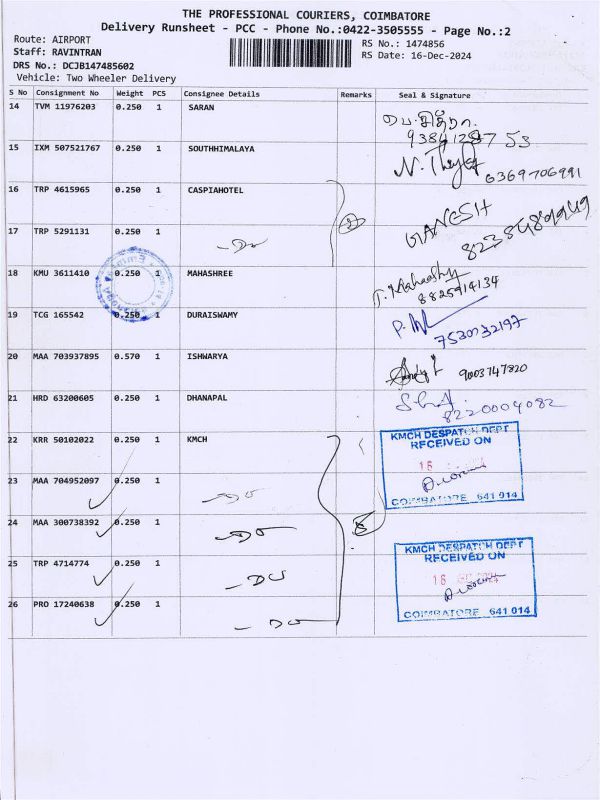 THE PROFESSIONAL COURIERS, COIMBATORE
Delivery Runsheet - PCC - Phone No.:0422-3505555 - Page No.:2
Route: AIRPORT
Staff: RAVINTRAN
DRS No.: DCJB147485602
Vehicle: Two Wheeler Delivery
RS No.: 1474856
RS Date: 16-Dec-2024
S No Consignment No Weight PCS Consignee Details Remarks Seal & Signature
14 TVM 11976203 0.250 1 SARAN
15 IXM 507521767 0.250 1 SOUTHHIMALAYA
6369706991
16 TRP 4615965 0.250 1 CASPIAHOTEL
GANESH
17 TRP 5291131 0.250 1 -Do
18 KMU 3611410 0.250 1 MAHASHREE
T. Mahashry
8825914134
19 TCG 165542 0.250 1 DURAISWAMY
7530032197
20 MAA 703937895 0.570 1 ISHWARYA
9003747820
21 HRD 63200605 0.250 1 DHANAPAL
8220004082
22 KRR 50102022 0.250 1 KMCH
KMCH DESPATCH DEPT
RECEIVED ON
COIMBATORE 641 014
23 MAA 704952097 0.250 1 -Do
24 MAA 300738392 0.250 1 -Do
5
25 TRP 4714774 0.250 1 -Do
KMCH DESPATCH DEPT
RECEIVED ON
COIMBATORE 641 014
26 PRO 17240638 0.250 1 -Do